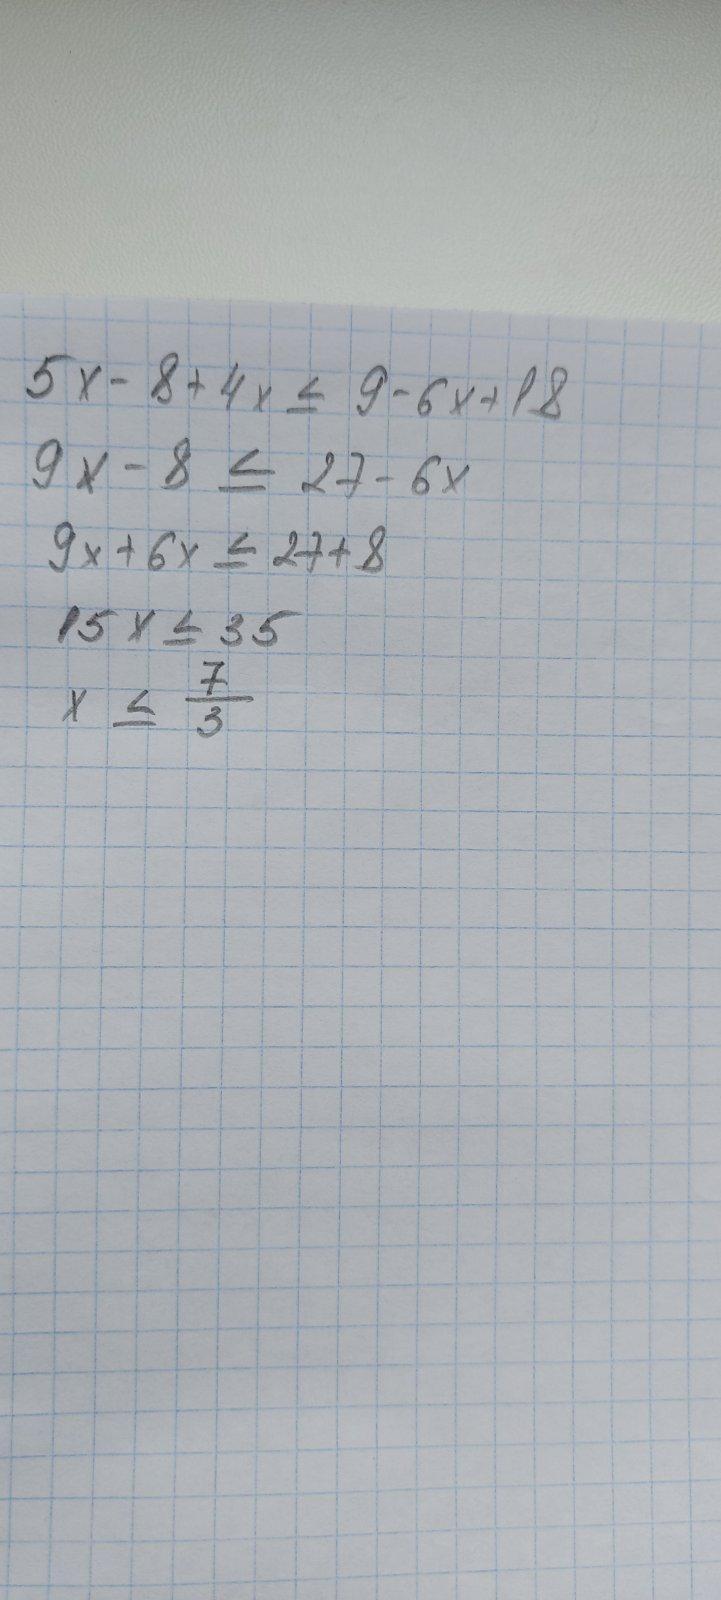 5x - 8 + 4x ≤ 9 - 6x + 18
9x - 8 ≤ 27 - 6x
9x + 6x ≤ 27 + 8
15x ≤ 35
x ≤ 7/3